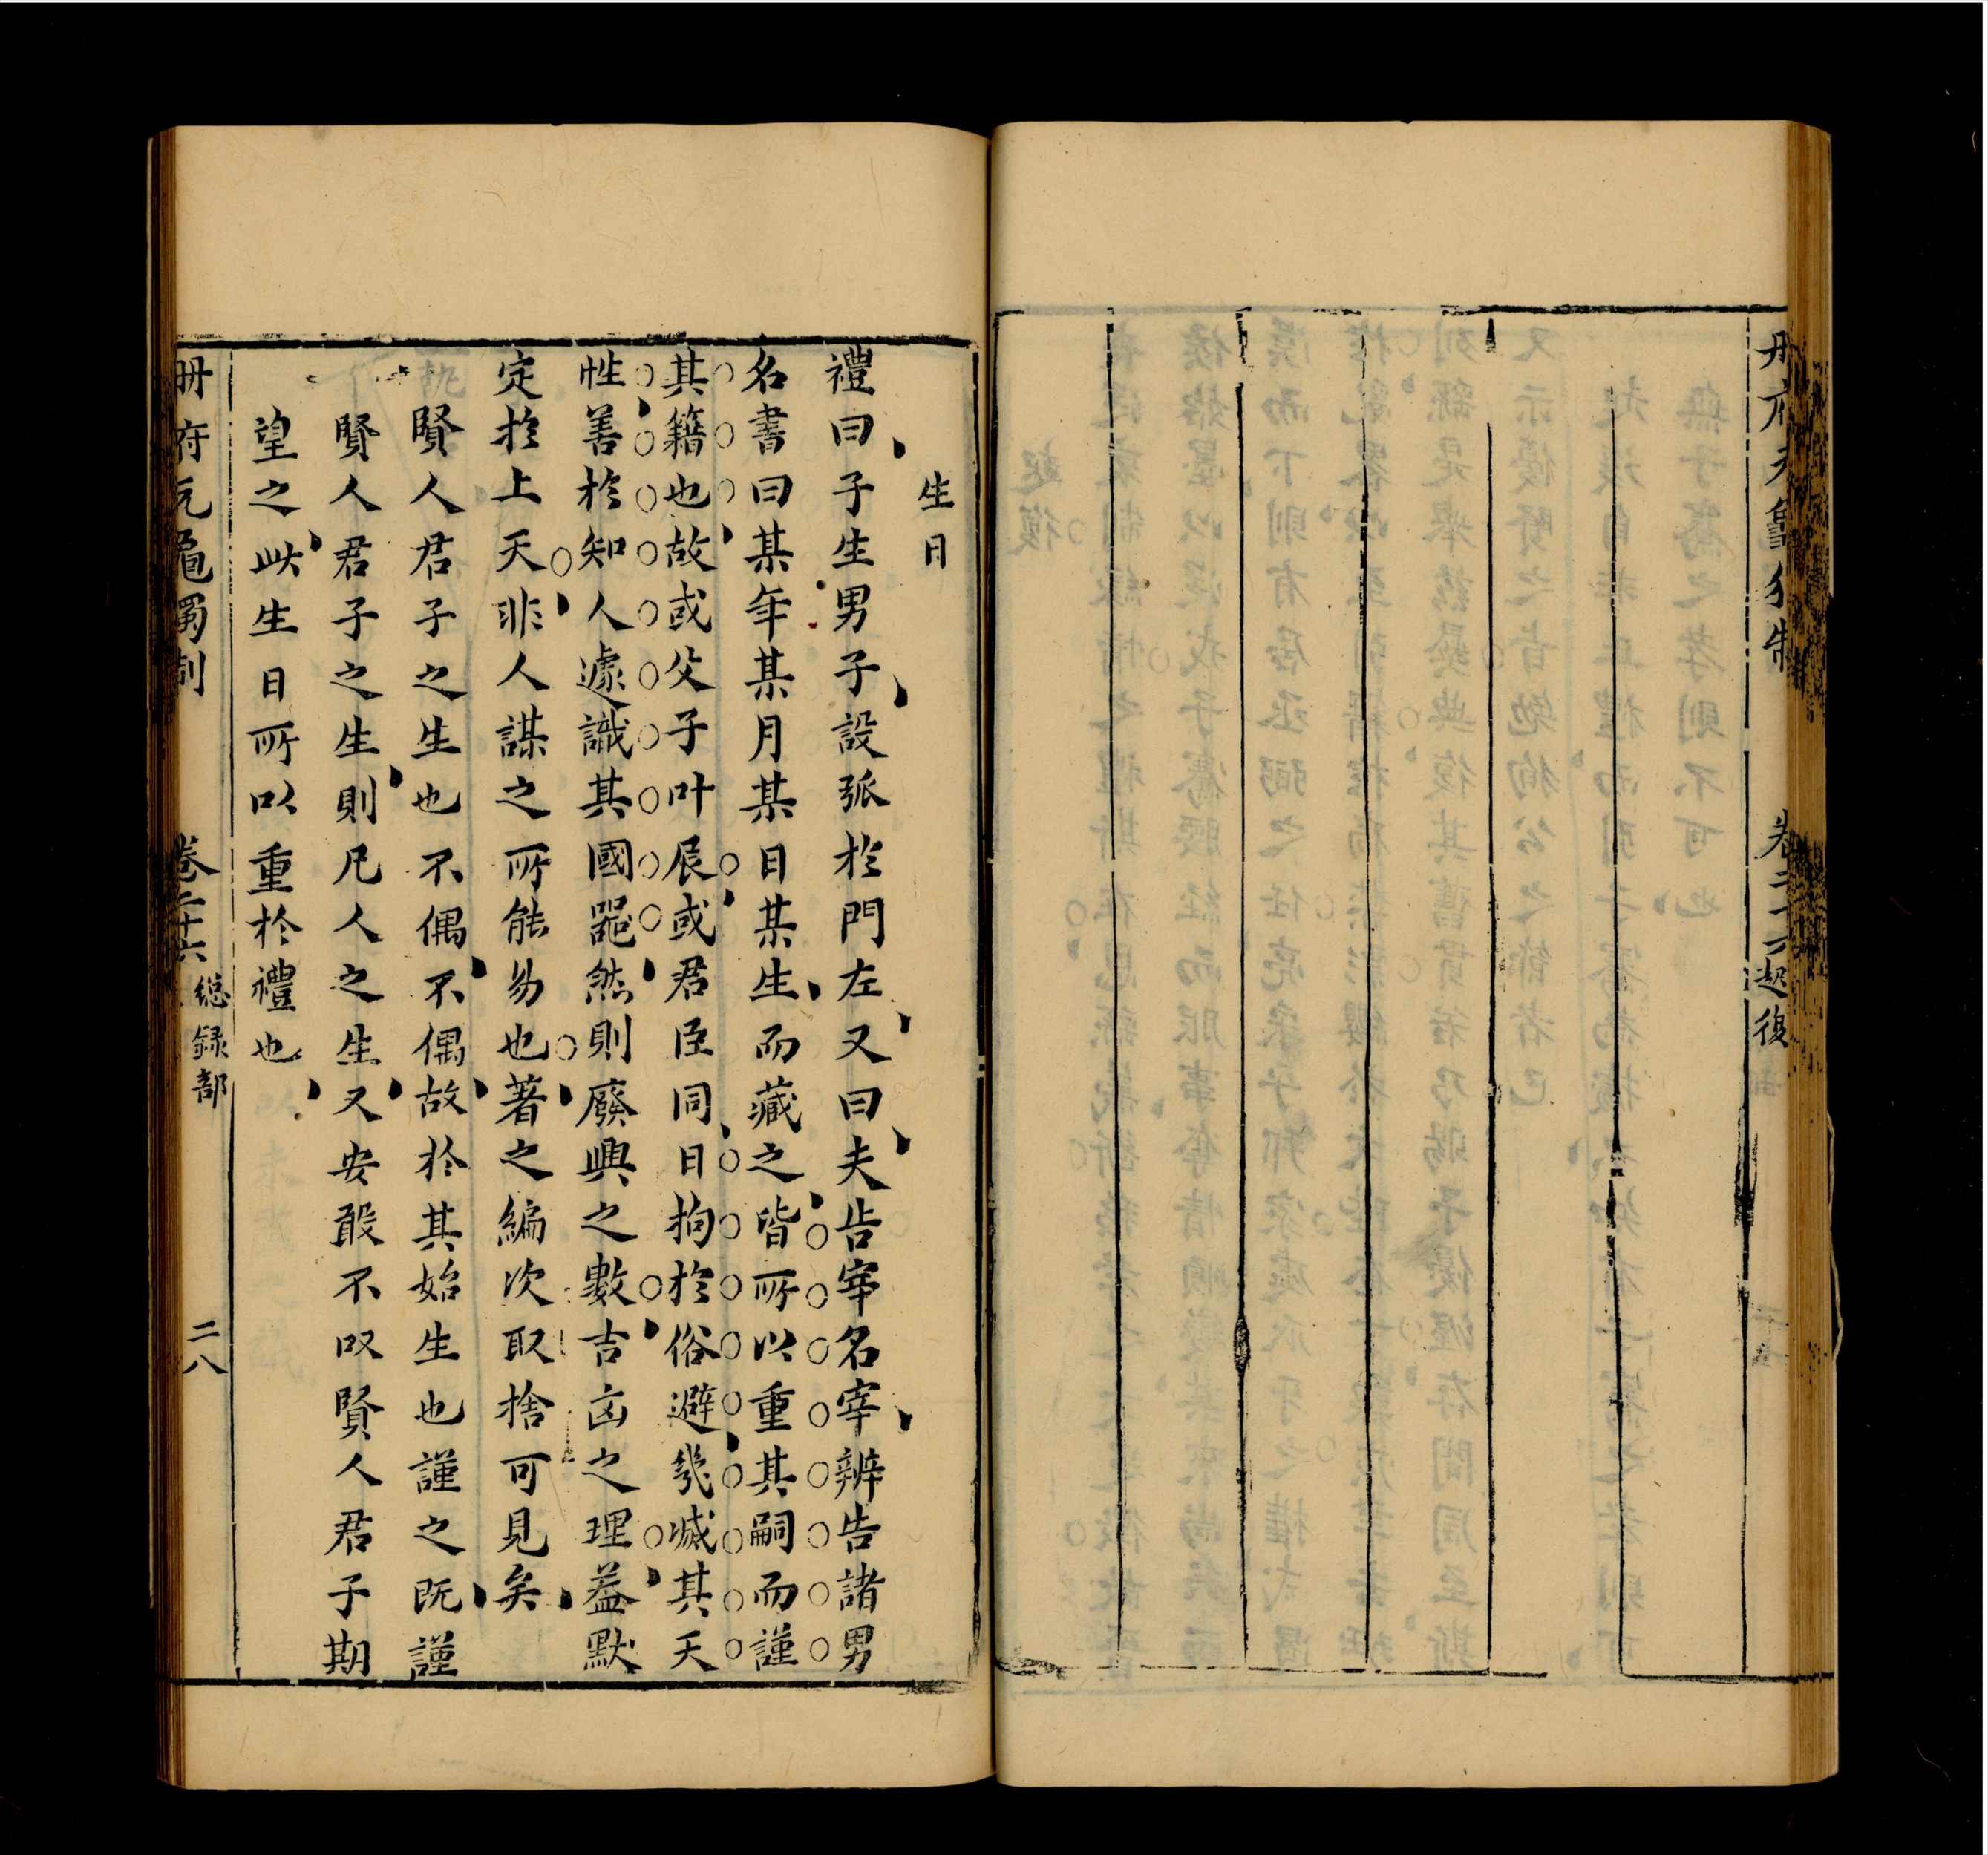 冊府元龜獨制
卷二十六
起復
生日
禮曰子生男子設弧於門左又曰夫告宰名宰辨告諸男
名書曰某年某月某日某生而藏之皆所以重其嗣而謹
其籍也故或父子叶辰或君臣同日拘於俗避幾滅其天
性善於知人遽識其國器然則廢興之數吉凶之理葢默
定於上天非人謀之所能易也著之編次取捨可見矣
賢人君子之生也不偶不偶故於其始生也謹之既謹
賢人君子之生則凡人之生又安敢不以賢人君子期
望之此生日所以重於禮也
冊府元龜獨制
卷二十六
總録部
二八